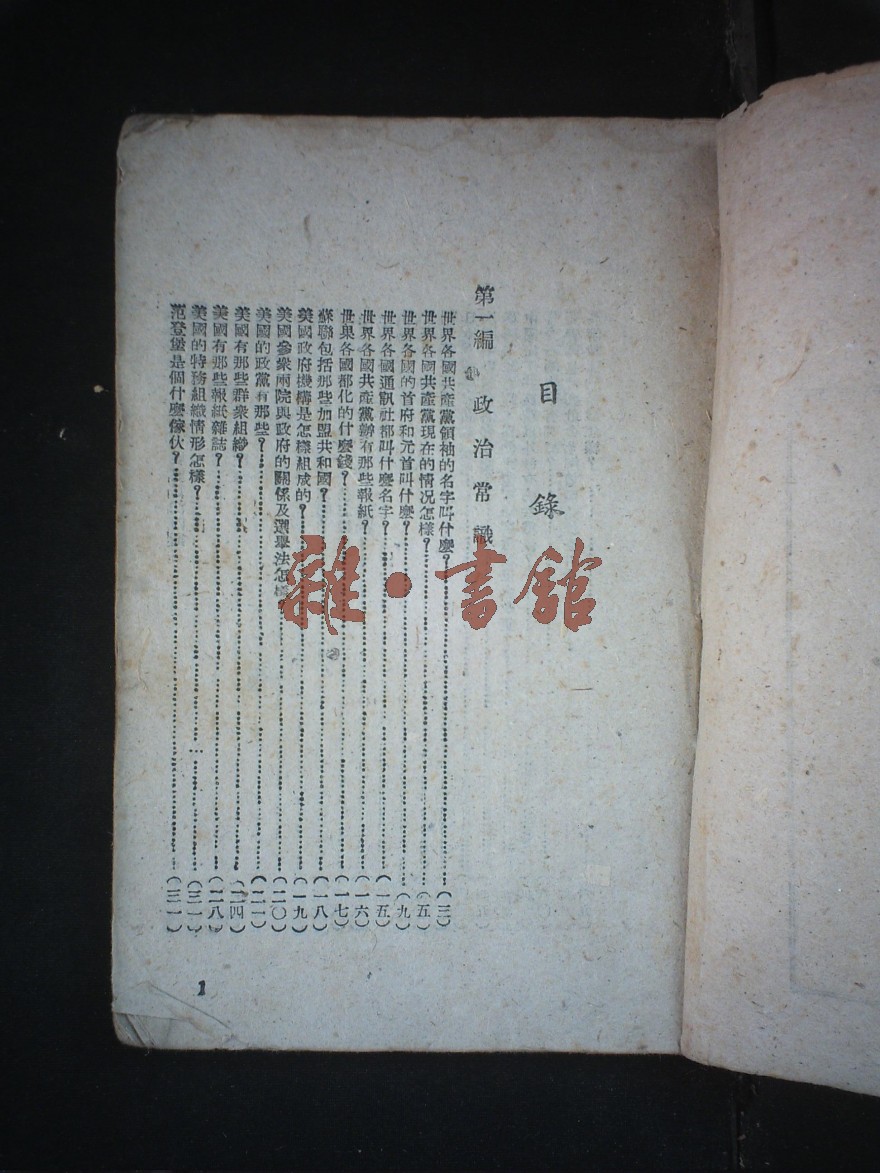 目 錄
第一編 政治常識
世界各國共產黨領袖的名字叫什麼?……(三)
世界各國共產黨現在的情况怎樣?……(五)
世界各國的首府和元首叫什麼?……(九)
世界各國通訊社都叫什麼名字?……(一五)
世界各國共產黨辦有那些報紙?……(一六)
世界各國都化的什麼錢?……(一七)
蘇聯包括那些加盟共和國?……(一八)
美國政府機構是怎樣組成的?……(一九)
美國參衆兩院與政府的關係及選舉法怎樣……(二〇)
美國的政黨有那些?……(二一)
美國有那些群衆組織?……(二四)
美國有那些報紙雜誌?……(二八)
美國的特務組織情形怎樣?……(三一)
范登堡是個什麼傢伙?……(三一)
1
雜·書館